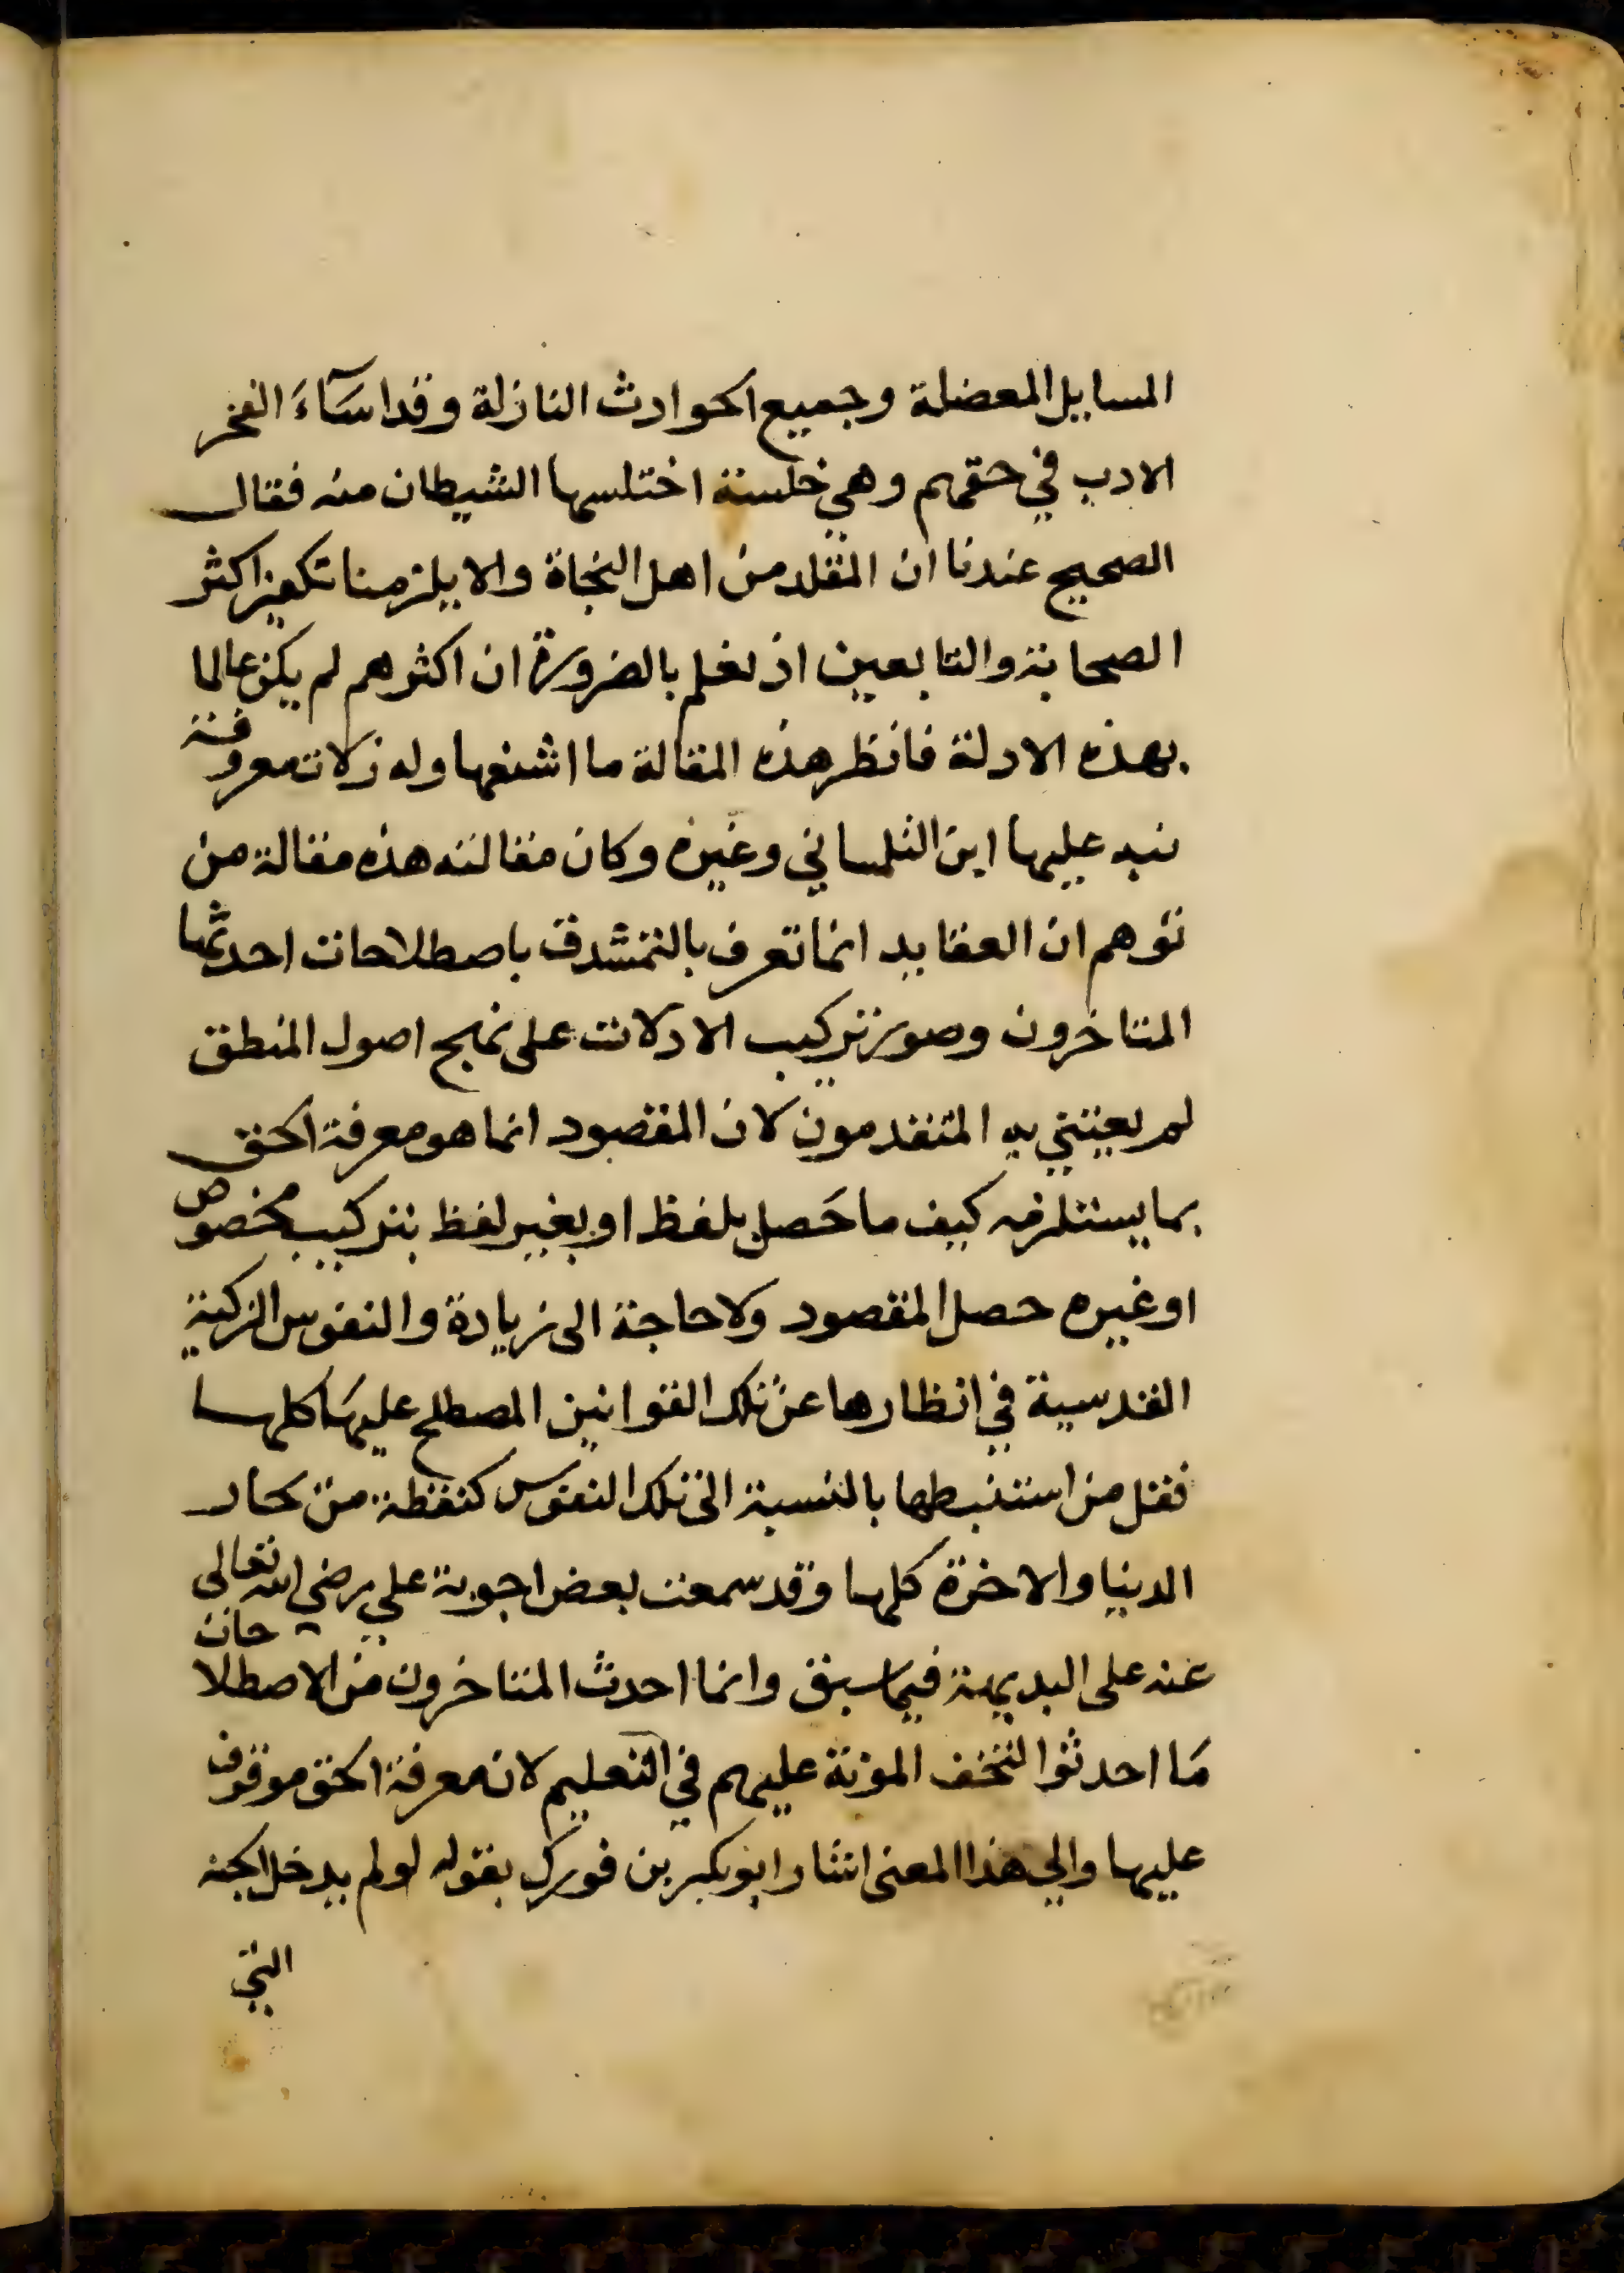 المسايل المعضلة وجميع الحوادث النازلة وقد اسَآءَ الفخر
الادب في حقهم وهي خلسة اختلسها الشيطان منه فقال
الصحيح عندنا ان المقلد من اهل النجاة والا يلزمنا تكفير اكثر
الصحابة والتابعين اذ نعلم بالضرورة ان اكثرهم لم يكن عالما
بهذه الادلة فانظر هذه المقالة ما اشنعها وله زلات معروفة
نبه عليها ابن التلمساني وغيره وكان مقالته هذه مقالة من
توهم ان العقايد انما تعرف بالتمشدق باصطلاحات احدثها
المتاخرون وصور تركيب الادلات على نهج اصول المنطق
لم يعتني به المتقدمون لان المقصود انما هو معرفة الحق
بما يستلزمه كيف ما حَصل بلفظ او بغير لفظ بتركيب مخصوص
او غيره حصل المقصود ولا حاجة الى زيادة والنفوس الزكية
القدسية في انظارها عن تلك القوانين المصطلح عليها كلها
فقل من استنبطها بالنسبة الى تلك النفوس كنقطة من بحار
الدنيا والاخرة كلها وقد سمعت بعض اجوبة علي رضي الله تعالى
عنه على البديهة فيما سبق وانما احدث المتاخرون من الاصطلاحات
مَا احدثوا لتخف المؤنة عليهم في التعليم لان معرفة الحق موقوف
عليها والى هذا المعنى اشار ابو بكر بن فورك بقوله لو لم يدخل الجنة
التي